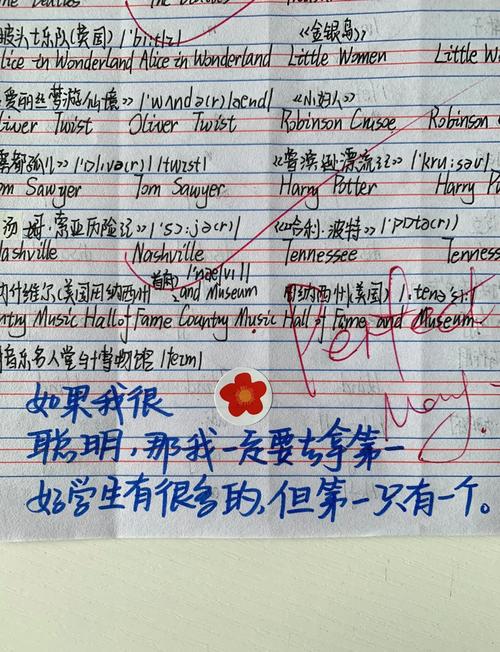 The Beatles The Beatles
披头士乐队(英国) 《金银岛》
Alice in Wonderland Alice in Wonderland Little Women Little W
爱丽丝梦游仙境》 《小妇人》
Oliver Twist Oliver Twist Robinson Crusoe Robinson
雾都孤儿》 《鲁滨逊漂流记》
om Sawyer Tom Sawyer Harry Potter Harry P
汤姆·索亚历险记》 《哈利·波特》
Nashville Nashville Tennessee Tenness
纳什维尔(美国田纳西州首府) and Museum 田纳西州(美国)
ntry Music Hall of Fame Country Music Hall of Fame and Museum
音乐名人堂与博物馆
Perfect
May
如果我很
聪明,那我一定要去拿第一
好学生有很多的,但第一只有一个。